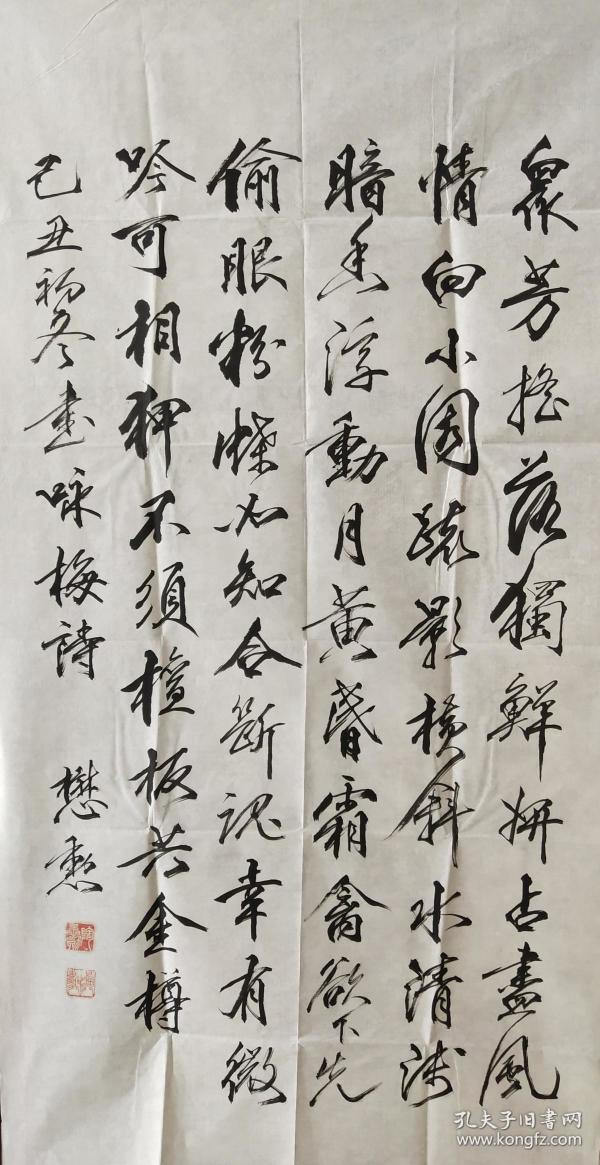 衆芳搖落獨鮮妍占盡風
情向小園疏影橫斜水清淺
暗香浮動月黃昏霜禽欲下先
偷眼粉蝶如知合斷魂幸有微
吟可相狎不須檀板共金樽
己丑初冬書咏梅詩 懋
孔夫子旧書网
www.kongfz.com